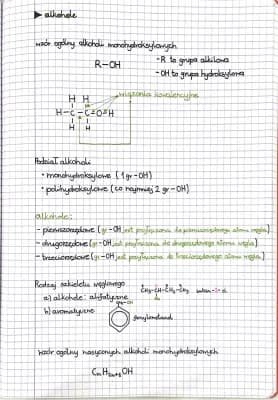 ▶ alkohole
wzór ogólny alkoholi monohydroksylowych
R-OH
-R to grupa alkilowa
-OH to grupa hydroksylowa
wiązania kowalencyjne
H H
H-C-C=O=H
H H
Podział alkoholi
• monohydroksylowe (1 gr -OH)
• polihydroksylowe (co najmniej 2 gr -OH)
alkohole:
- pierwszorzędowe (gr -OH jest przyłączona do pierwszorzędowego atomu węgla)
- drugorzędowe (gr -OH jest przyłączona do drugorzędowego atomu węgla)
- trzeciorzędowe (gr -OH jest przyłączona do trzeciorzędowego atomu węgla)
Rodzaj szkieletu węglowego
a) alkohole: alifatyczne
CH₃-CH-CH₂-CH₃
b) aromatyczne
fenylometanol
wzór ogólny nasyconych alkoholi monohydroksylowych
CₙH₂ₙ₊₁OH